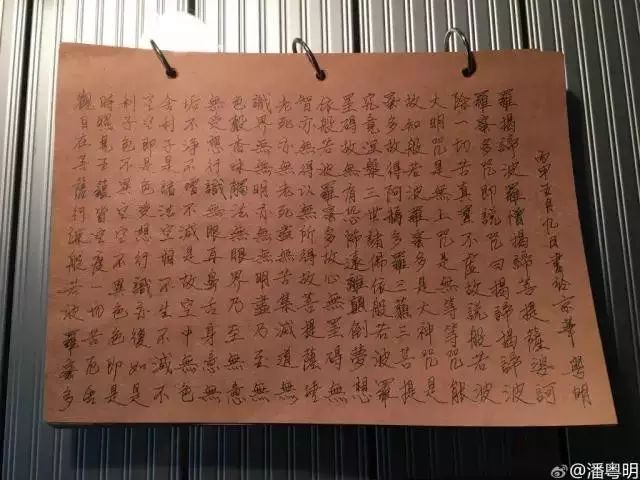 觀自在菩薩行深般若波羅蜜多
時照見五蘊皆空度一切苦厄舍
利子色不異空空不異色色即是
空空即是色受想行識亦復如是
舍利子是諸法空相不生不滅不
垢不淨不增不減是故空中無色
無受想行識無眼耳鼻舌身意無
色聲香味觸法無眼界乃至無意
識界無無明亦無無明盡乃至無
老死亦無老死盡無苦集滅道無
智亦無得以無所得故菩提薩埵
依般若波羅蜜多故心無罣礙無
罣礙故無有恐怖遠離顛倒夢想
究竟涅槃三世諸佛依般若波羅
蜜多故得阿耨多羅三藐三菩提
故知般若波羅蜜多是大神咒是
大明咒是無上咒是無等等咒能
除一切苦真實不虛故說般若波
羅蜜多咒即說咒曰揭諦揭諦波
羅揭諦波羅僧揭諦菩提薩婆訶
五月九日書於京華 粵明
@潘粤明